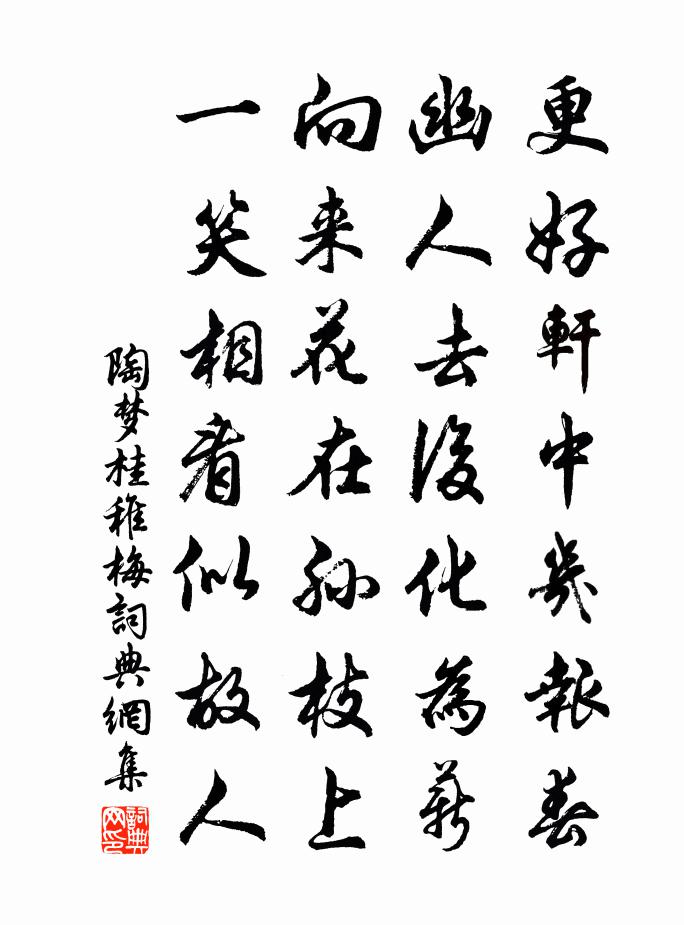 更好軒中幾報春
幽人去後化為薪
向来花在孫枝上
一笑相看似故人
陶梦桂稚梅詞典網集
詞典网印